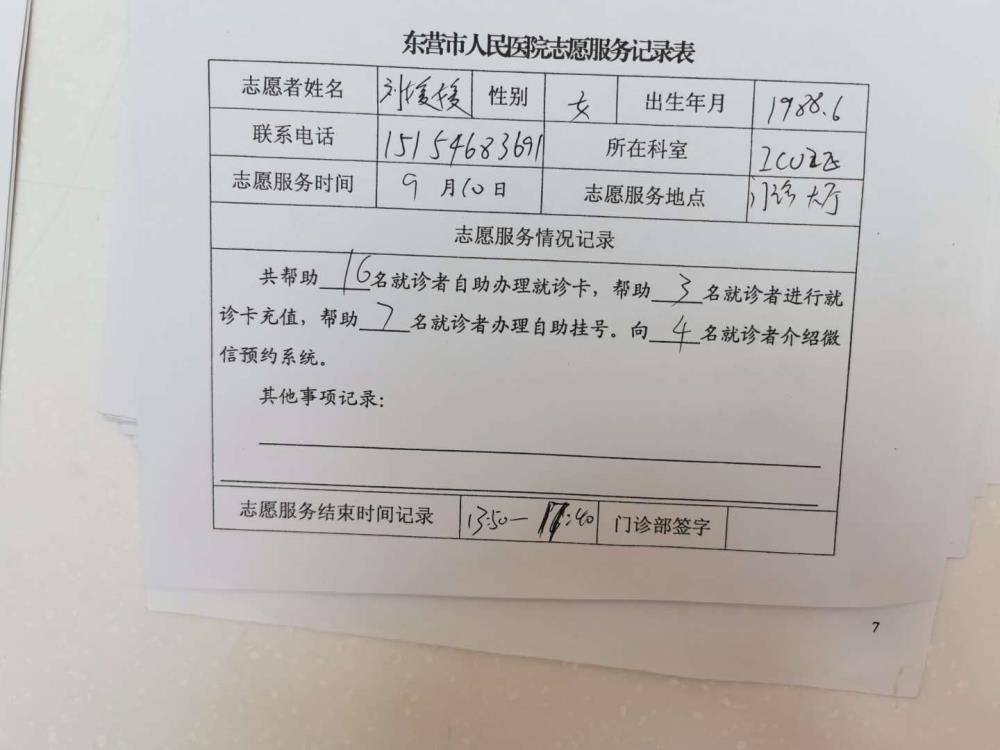 东营市人民医院志愿服务记录表
志愿者姓名 刘媛媛 性别 女 出生年月 1988.6
联系电话 15154683691 所在科室 ICU
志愿服务时间 9月10日 志愿服务地点 门诊大厅
志愿服务情况记录
共帮助16名就诊者自助办理就诊卡，帮助3名就诊者进行就
诊卡充值，帮助7名就诊者办理自助挂号。向4名就诊者介绍微
信预约系统。
其他事项记录：
志愿服务结束时间记录 13:50— :40 门诊部签字
7